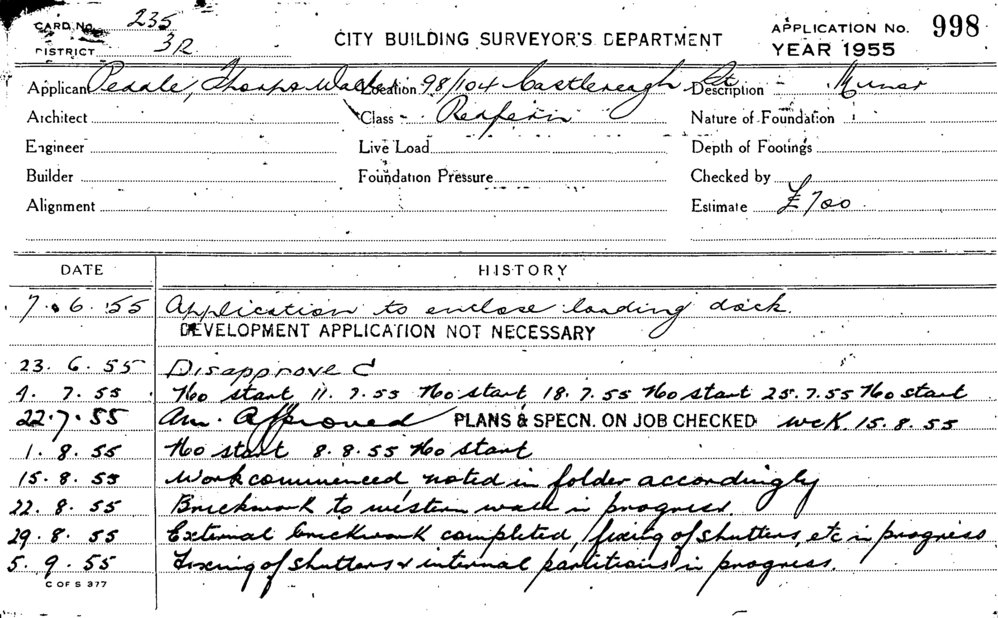 CARD No. 235
DISTRICT 3R
CITY BUILDING SURVEYOR'S DEPARTMENT
APPLICATION No. 998
YEAR 1955
Applicant Location 98/104 Castlereagh St. Description
Architect Class Nature of Foundation
Engineer Live Load Depth of Footings
Builder Foundation Pressure Checked by
Alignment Estimate £700
DATE HISTORY
7.6.55 Application to enclose loading dock.
DEVELOPMENT APPLICATION NOT NECESSARY
23.6.55 Disapproved
4.7.55 No start 11.7.55 No start 18.7.55 No start 25.7.55 No start
22.7.55 Am. Approved PLANS & SPECN. ON JOB CHECKED 15.8.55
1.8.55 No start 8.8.55 No start
15.8.55 Work commenced, noted in folder accordingly
22.8.55 Brickwork to western wall in progress.
29.8.55 External brickwork completed, fixing of shutters, etc in progress
5.9.55 Fixing of shutters & internal partitions in progress.
C OF S 377